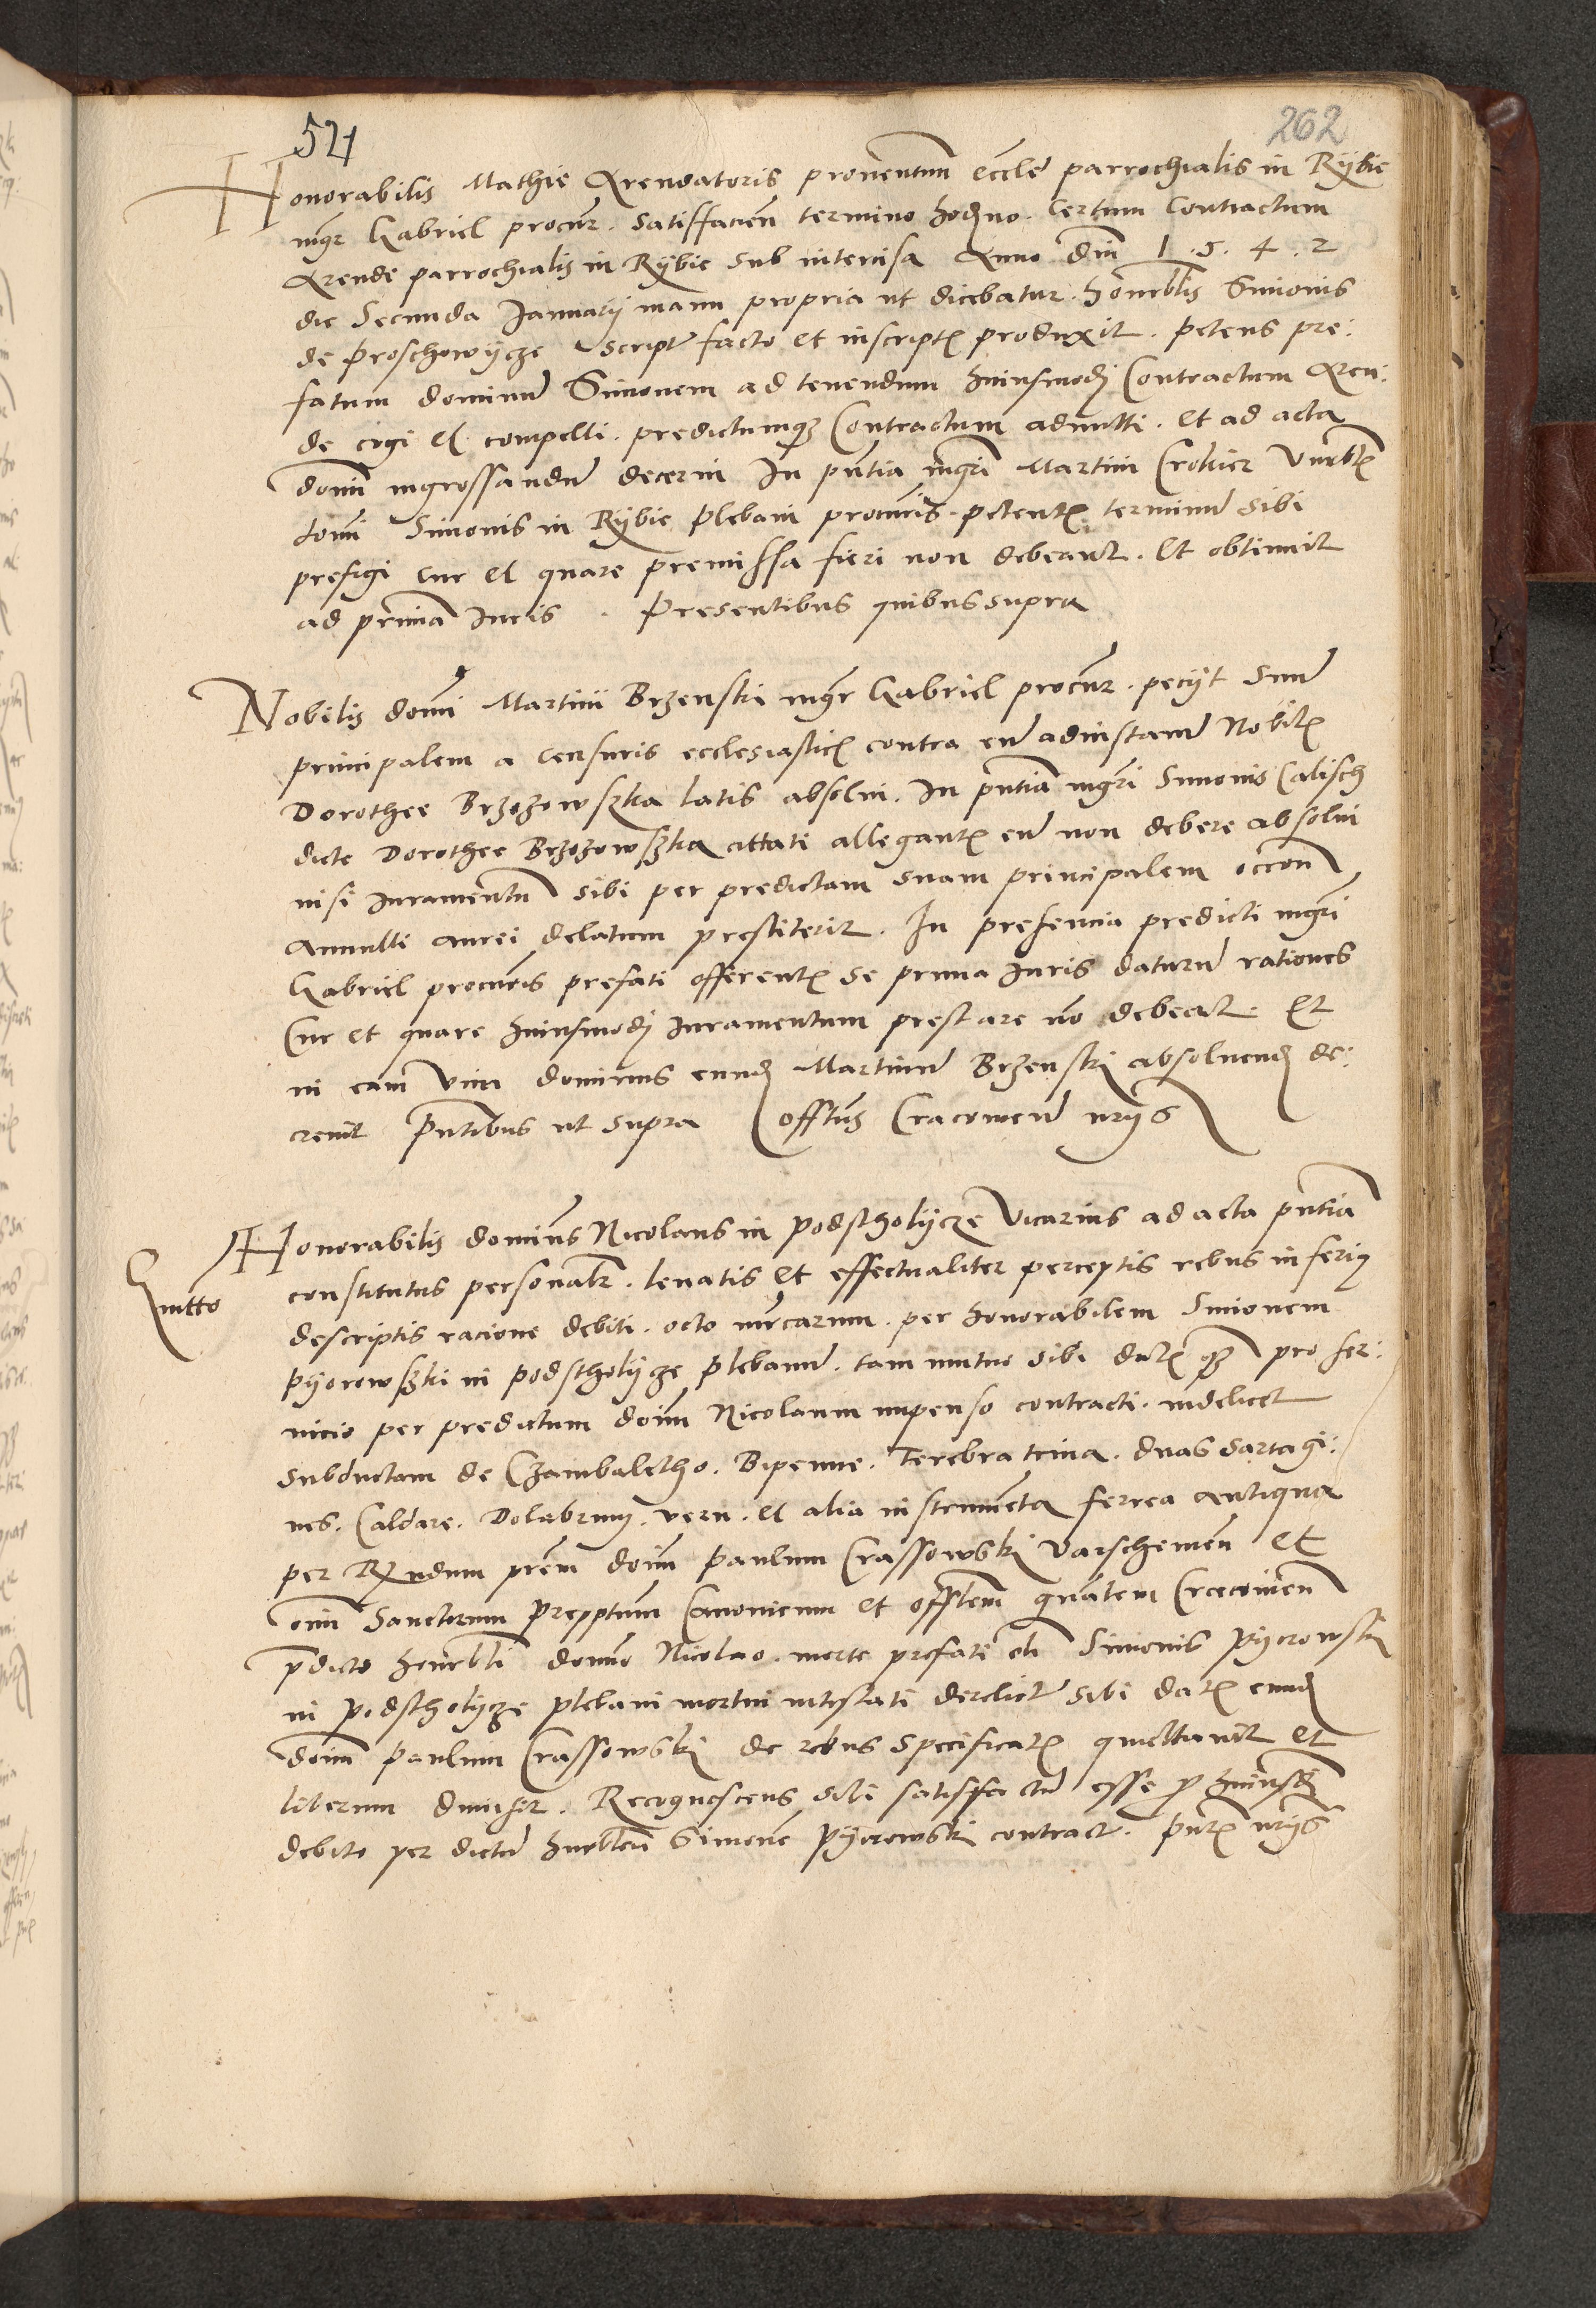 521
262
Honorabilis Mathie Arendatoris proventuum eccle parrochialis in Rÿbie
mgr Gabriel procur. satisfacien termino hodierno. Certum Contractum
Arende parrochialis in Rÿbie sub intercisa Anno dni 1.5.4.2
die Secunda Januarÿ manu propria ut dicebatur. honorablis Simonis
de Proschowÿcze script facto et inscript produxit. petens pre:
fatum dominum Simonem ad tenendum huiusmodi Contractum Aren:
de cogi et compelli. predictumque Contractum admitti. et ad acta
domi ingrossandum decerni In pntia mgri Martini venerabilis
domi Simonis in Rÿbie plebani procuris. petent terminum sibi
prefigi cur et quare premissa fieri non debeant. Et obtinuit
ad prima Juris. Presentibus quibus supra
Nobilis domi Martini Brzenski mgr Gabriel procur. petÿt suum
principalem a censuris ecclesiastic contra eum ad instanciam Nobilis
Dorothee Brzozowszka latis absolvi. In pntia mgri Simonis Calisch
dicte Dorothee Brzozowszka allegant eum non debere absolvi
nisi iuramentum sibi per predictam suam principalem occon
annulli aurei delatum prestiterit. In presencia predicti mgri
Gabriel procuris prefati offerent se prima Juris daturum rationes
Cur et quare huiusmodi iuramentum prestare non debeat. Et
in eam vim dominus eundem Martinum Brzenski absolvendum de:
crevit pntibus ut supra Cracovien
Quitto
Honorabilis dominus Nicolaus in Podstholÿcze Vicarius ad acta pntia
constitutus personalr. levatis et effectualiter perceptis rebus inferius
descriptis racione debiti. octo mrcarum. per honorabilem Simonem
Pÿorowszki in Podstholÿcze plebanum. tam mutuo sibi dat quam pro ser:
vicio per predictum doim Nicolaum impenso contracti. videlicet
subductam de Czambaletho. Bipenne. Terebra trina. duas sartagi:
nes. Caldare. Dolabrum. veru. et alia instrumenta ferrea antiqua
per Rndum prem doim Paulum Crassowski Varschevien et
oim Sanctorum preptum Canonicum et offtem gnalem Cracovien
pdicto honorbli domino Nicolao. morte prefati olim Simonis Pÿorowski
in Podstholÿcze plebani mortui intestati derelict sibi dat eundem
doim Paulum Crassowski de rebus specificat quittavit et
liberum dimisit. Recognoscens sibi satisfactum esse pro huiusmodi
debito per dictum Simonem Pÿorowski contract.